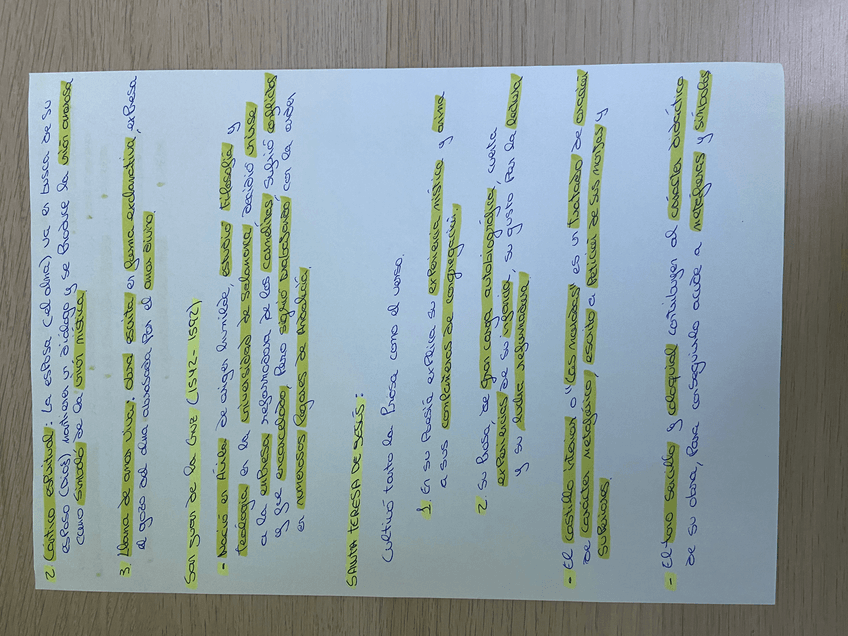 2. Cántico espiritual: La esposa (el alma) va en busca de su
esposo (Dios) mantienen un diálogo y se produce la unión amorosa
como símbolo de la unión mística.
3. Llama de amor viva: obra escrita en forma exclamativa, expresa
el gozo del alma abrasada por el amor divino.
San Juan de la Cruz (1542-1592)
- Nació en Ávila de origen humilde, estudió Filosofía y
Teología en la universidad de Salamanca, decidió unirse
a la empresa reformadora de los carmelitas. Sufrió conflictos
y fue encarcelado, pero siguió trabajando con la orden
en numerosos lugares de Andalucía.
SANTA TERESA DE JESÚS:
Cultivó tanto la prosa como el verso.
1. En su poesía explica su experiencia mística y anima
a sus compañeras de congregación.
2. Su prosa, de gran carga autobiográfica, cuenta
experiencias de su infancia, su gusto por la lectura
y su labor reformadora.
- El castillo interior o "Las moradas" es un tratado de oración
de carácter metafórico, escrito a petición de sus monjas y
superiores.
- El tono sencillo y coloquial contribuyen al carácter didáctico
de su obra, para conseguirlo acude a metáforas y símbolos